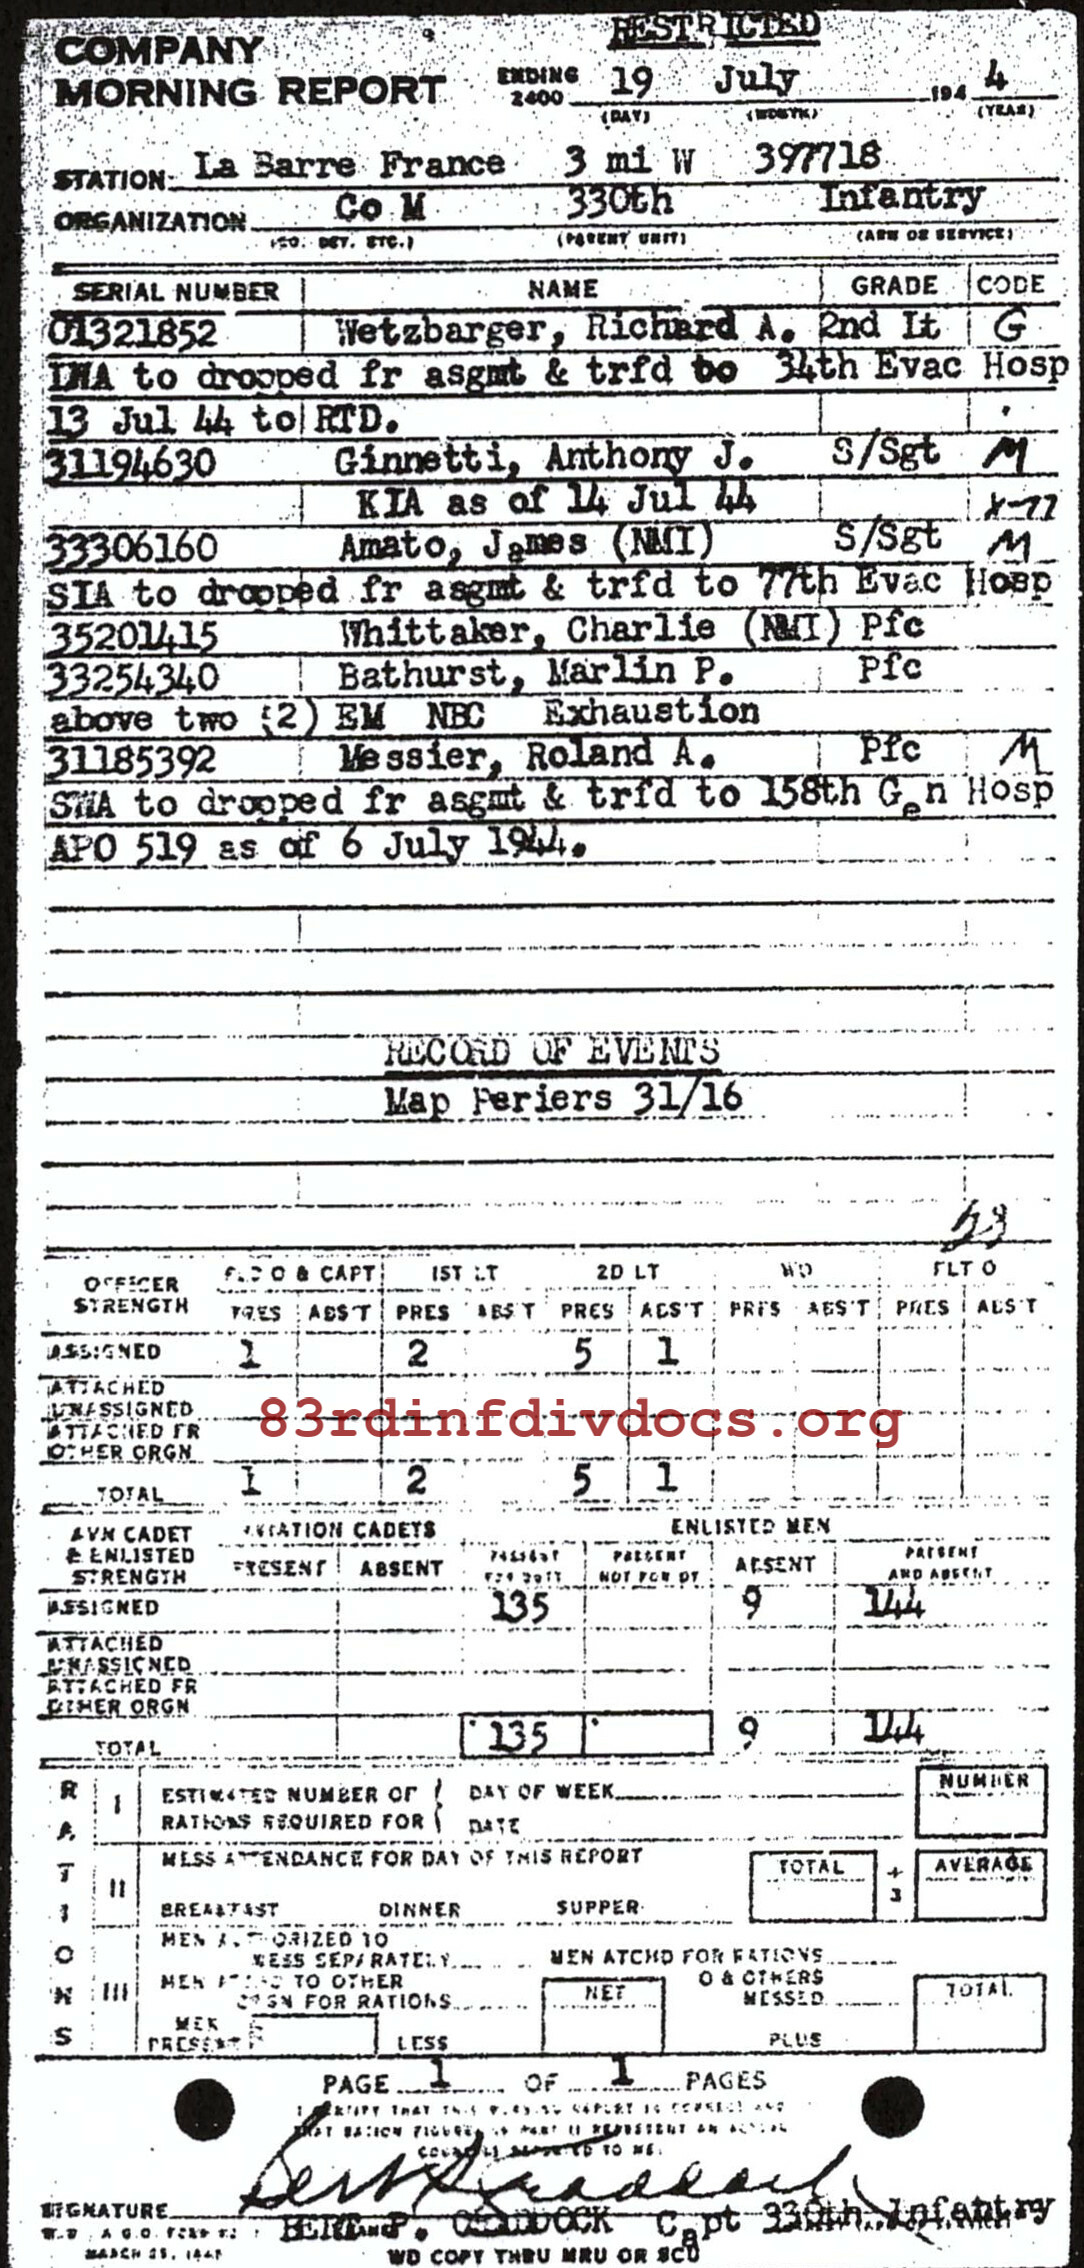 RESTRICTED
COMPANY
MORNING REPORT ENDING 2400 19 July 194 4
(DAY) (MONTH) (YEAR)
STATION La Barre France 3 mi W 397718
ORGANIZATION Co M 330th Infantry
(CO. DET. ETC.) (PARENT UNIT) (ARM OR SERVICE)
SERIAL NUMBER NAME GRADE CODE
01321852 Wetzbarger, Richard A. 2nd Lt G
LWA to dropped fr asgmt & trfd to 34th Evac Hosp
13 Jul 44 to RTD.
31194630 Ginnetti, Anthony J. S/Sgt M
KIA as of 14 Jul 44 X-77
33306160 Amato, James (NMI) S/Sgt M
SIA to dropped fr asgmt & trfd to 77th Evac Hosp
35201415 Whittaker, Charlie (NMI) Pfc
33254340 Bathurst, Marlin P. Pfc
above two (2) EM NBC Exhaustion
31185392 Messier, Roland A. Pfc M
SWA to dropped fr asgmt & trfd to 158th Gen Hosp
APO 519 as of 6 July 1944.
RECORD OF EVENTS
Map Periers 31/16
OFFICER STRENGTH FLD O & CAPT 1ST LT 2D LT WO FLT O
PRES ABS'T PRES ABS'T PRES ABS'T PRES ABS'T PRES ABS'T
ASSIGNED 1 2 5 1
ATTACHED UNASSIGNED
ATTACHED FR OTHER ORGN
83rdinfdivdocs.org
TOTAL 1 2 5 1
AVN CADET & ENLISTED STRENGTH AVIATION CADETS ENLISTED MEN
PRESENT ABSENT PRESENT FOR DUTY PRESENT NOT FOR DY ABSENT PRESENT AND ABSENT
ASSIGNED 135 9 144
ATTACHED UNASSIGNED
ATTACHED FR OTHER ORGN
TOTAL 135 9 144
RATIONS
I ESTIMATED NUMBER OF RATIONS REQUIRED FOR DAY OF WEEK DATE NUMBER
II MESS ATTENDANCE FOR DAY OF THIS REPORT TOTAL ÷ 3 AVERAGE
BREAKFAST DINNER SUPPER
III MEN AUTHORIZED TO MESS SEPARATELY MEN ATCHD FOR RATIONS
MEN ATCHD TO OTHER ORGN FOR RATIONS NET O & OTHERS MESSED TOTAL
MEN PRESENT LESS PLUS
PAGE 1 OF 1 PAGES
I CERTIFY THAT THIS MORNING REPORT IS CORRECT AND
THAT RATION FIGURES IN PART II REPRESENT AN ACTUAL
COUNT AS REPORTED TO ME:
SIGNATURE BERT P. CRADDOCK Capt 330th Infantry
MARCH 25, 194
WD COPY THRU MRU OR SCU